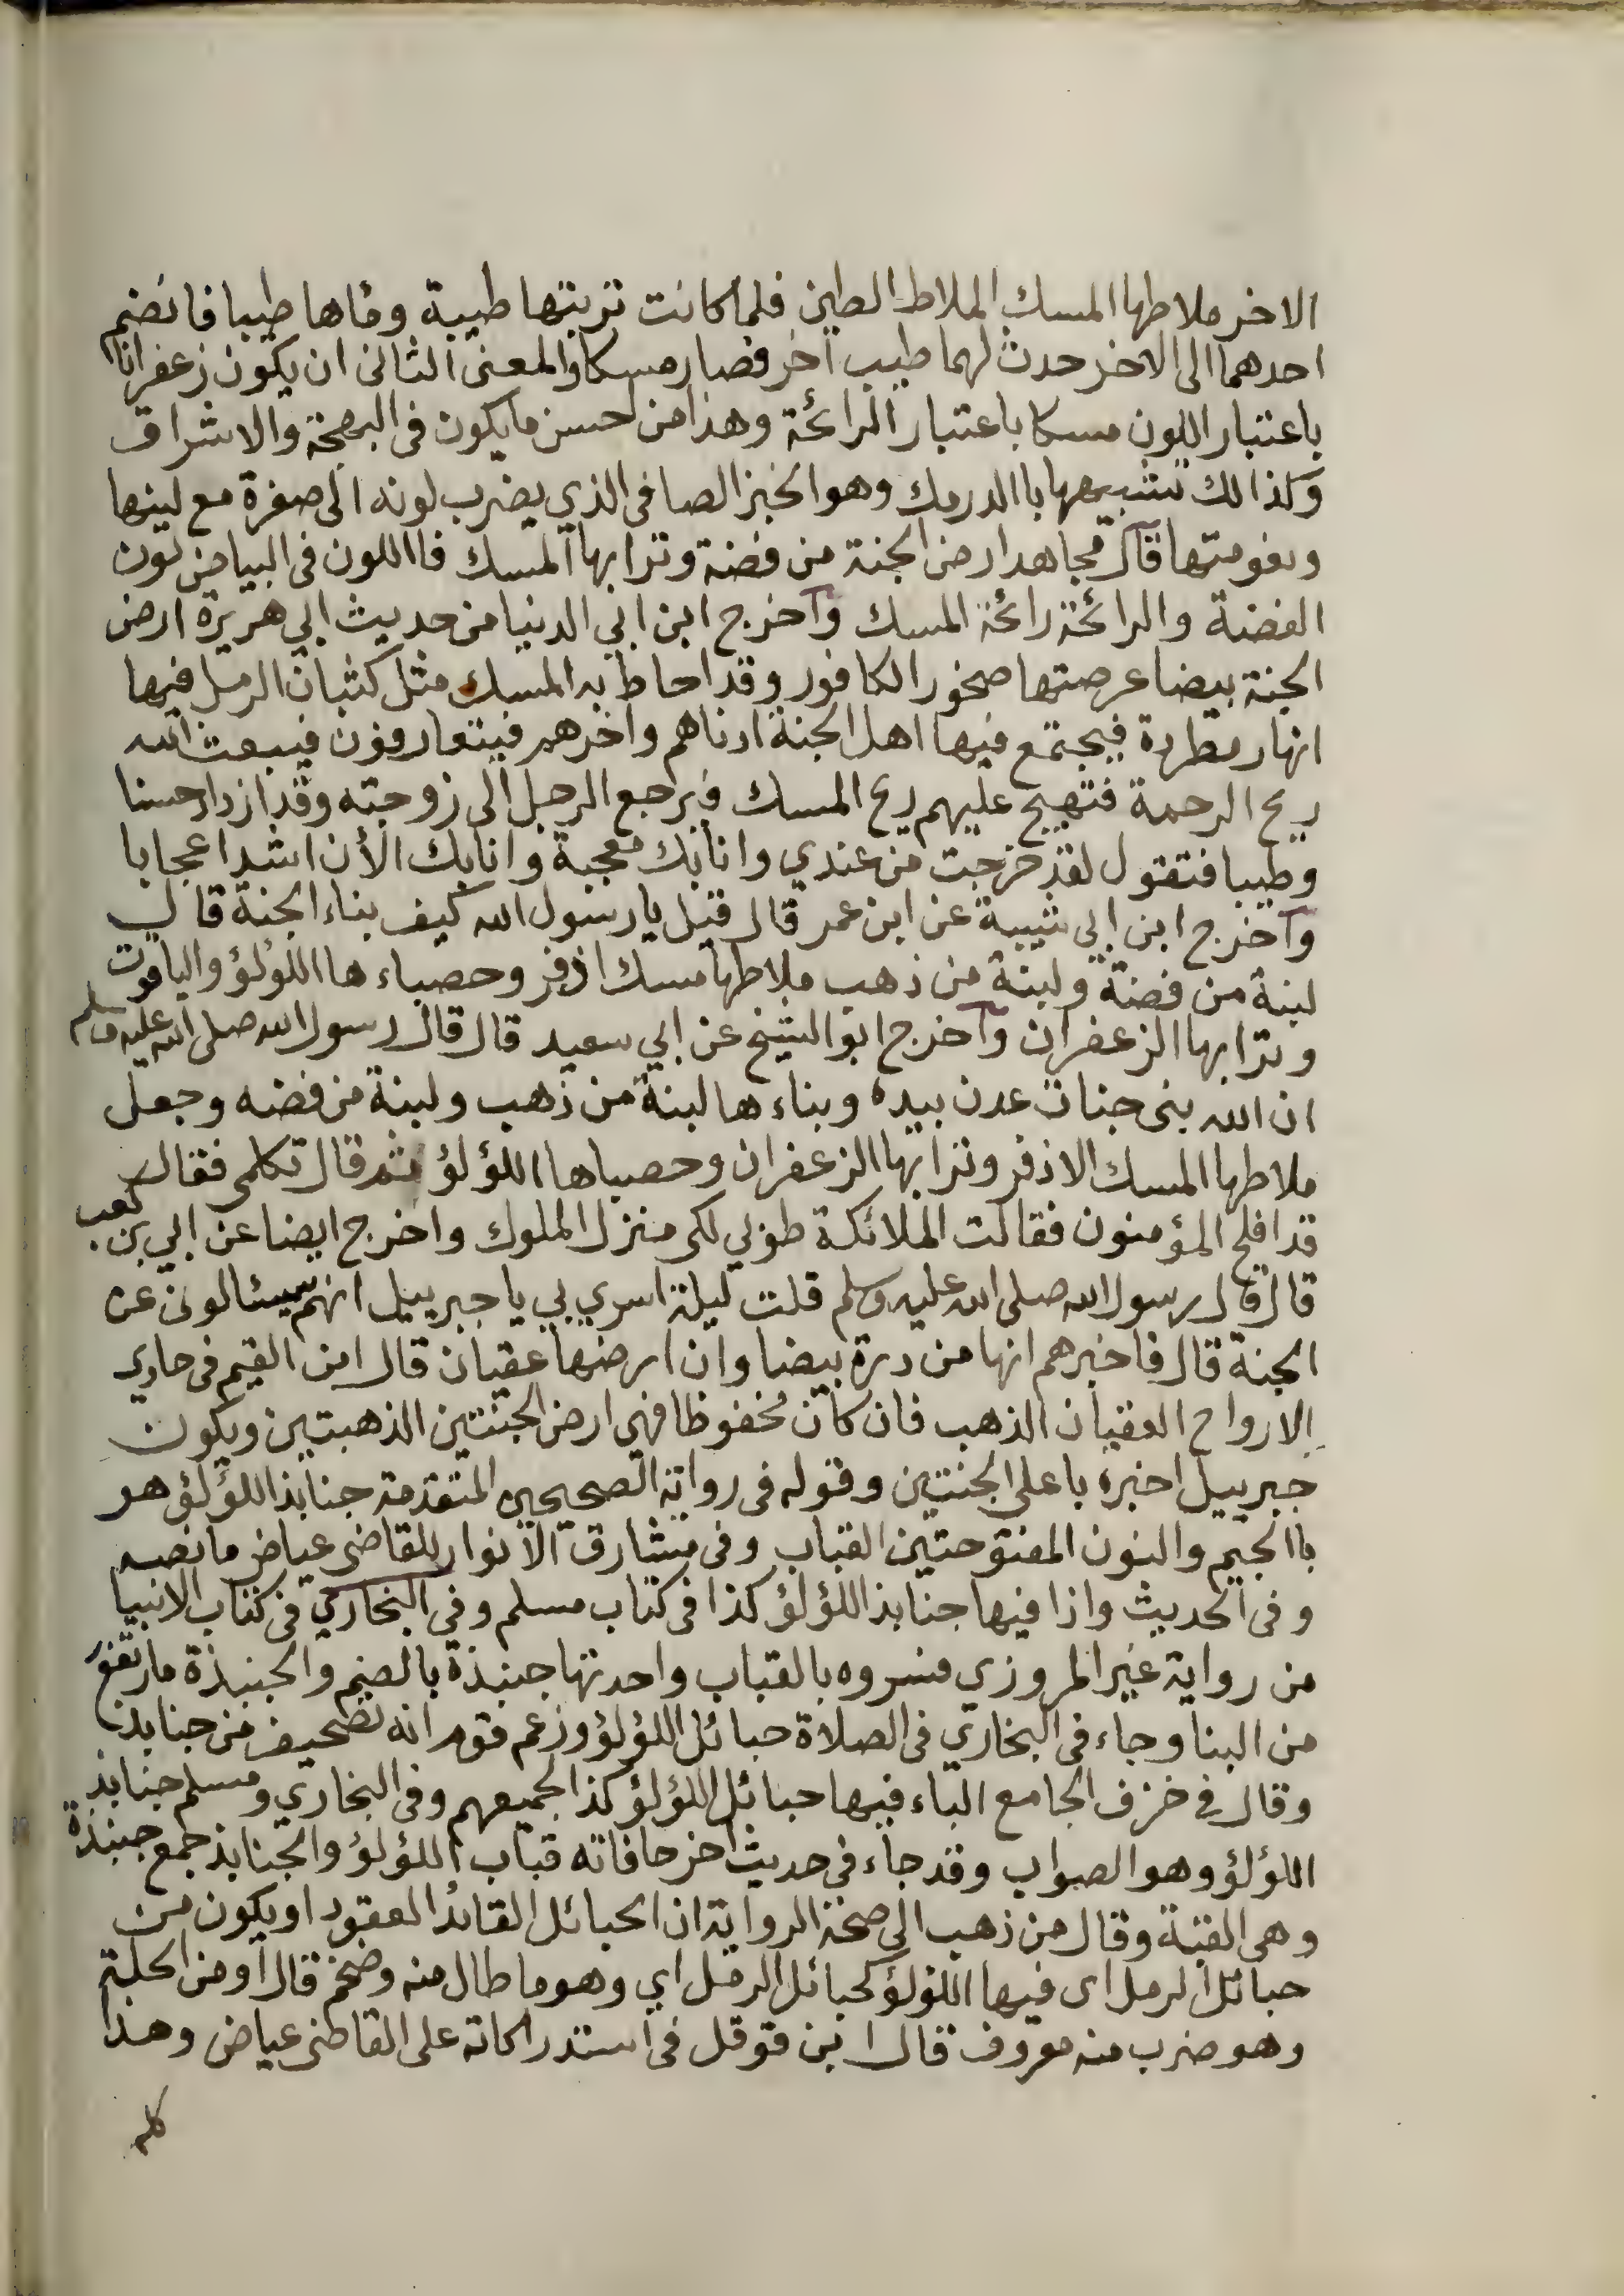 الاخر ملاطها المسك الملاط الطين فلما كانت تربتها طيبة وماها طيبا فانضم
احدهما الى الاخر حدث لهما طيب آخر فصار مسكا والمعنى الثانى ان يكون زعفرانا
باعتبار اللون مسكا باعتبار الرائحة وهذا من احسن ما يكون فى البهجة والاشراق
وكذالك تشبيهها باالدرمك وهو الخبز الصافى الذي يضرب لونه الى صفرة مع لينها
ونعومتها قآل مجاهد ارض الجنة من فضة وترابها المسك فااللون فى البياض لون
الفضة والرائحة رائحة المسك وآخرج ابن ابي الدنيا من حديث ابي هريرة ارض
الجنة بيضا عرصتها صخور الكافور وقد احاط به المسك مثل كثبان الرمل فيها
انهار مطردة فيجتمع فيها اهل الجنة ادناهم واخرهم فيتعارفون فيبعث الله
ريح الرحمة فتهيج عليهم ريح المسك فيرجع الرجل الى زوجته وقد ازداد حسنا
وطيبا فتقول لقد خرجت من عندي وانا بك معجبة وانا بك الأن اشد اعجابا
وآخرج ابن ابي شيبة عن ابن عمر قال قيل يا رسول الله كيف بناء الجنة قال
لبنة من فضة ولبنة من ذهب ملاطها مسك اذفر وحصباءها اللؤلؤ والياقوت
وترابها الزعفران وآخرج ابو الشيخ عن ابي سعيد قال قال رسول الله صلى الله عليه وسلم
ان الله بنى جنات عدن بيده وبناءها لبنة من ذهب ولبنة من فضه وجعل
ملاطها المسك الاذفر وترابها الزعفران وحصباها اللؤلؤ ثم قال تكلمى فقال
قد افلح المؤمنون فقالت الملائكة طوبي لكى منزل الملوك واخرج ايضا عن ابي بن كعب
قال قال رسول الله صلى الله عليه وسلم قلت ليلة اسري بي يا جبرييل انهم سيئالونى عن
الجنة قال فاخبرهم انها من درة بيضا وان ارضها عقيان قال ابن القيم فى حادي
الارواح العقيان الذهب فان كان محفوظا فهي ارض الجنتين الذهبتين ويكون
جبرييل اخبره باعلى الجنتين وقوله فى رواية الصحيحين المتقدمة جنابذ اللؤلؤ هو
باالجيم والنون المفتوحتين القباب وفى مشارق الانوار للقاضى عياض ما نصه
وفى الحديث واذا فيها جنابذ اللؤلؤ كذا فى كتاب مسلم وفي البخاري فى كتاب الانبيا
من رواية غير المروزي فسروه بالقباب واحدتها جنبذة بالضم والجنبذة ما ارتفع
من البنا وجاء فى البخاري فى الصلاة حبائل اللؤلؤ وزعم قوم انه تصحيف من جنابذ
وقال في حرف الجامع الباء فيها حبائل اللؤلؤ كذا لجميعهم وفى البخاري ومسلم جنابذ
اللؤلؤ وهو الصواب وقد جاء فى حديث اخر حافاته قباب اللؤلؤ والجنابذ جمع جنبذة
وهى القبة وقال من ذهب الى صحة الرواية ان الحبائل القائد العقود او يكون من
حبائل الرمل اى فيها اللؤلؤ كحبائل الرمل اي وهو ما طال منه وضخم قال او من الحلبة
وهو ضرب منه معروف قال ابن قوقل فى استدراكاته على القاضى عياض وهذا
كله